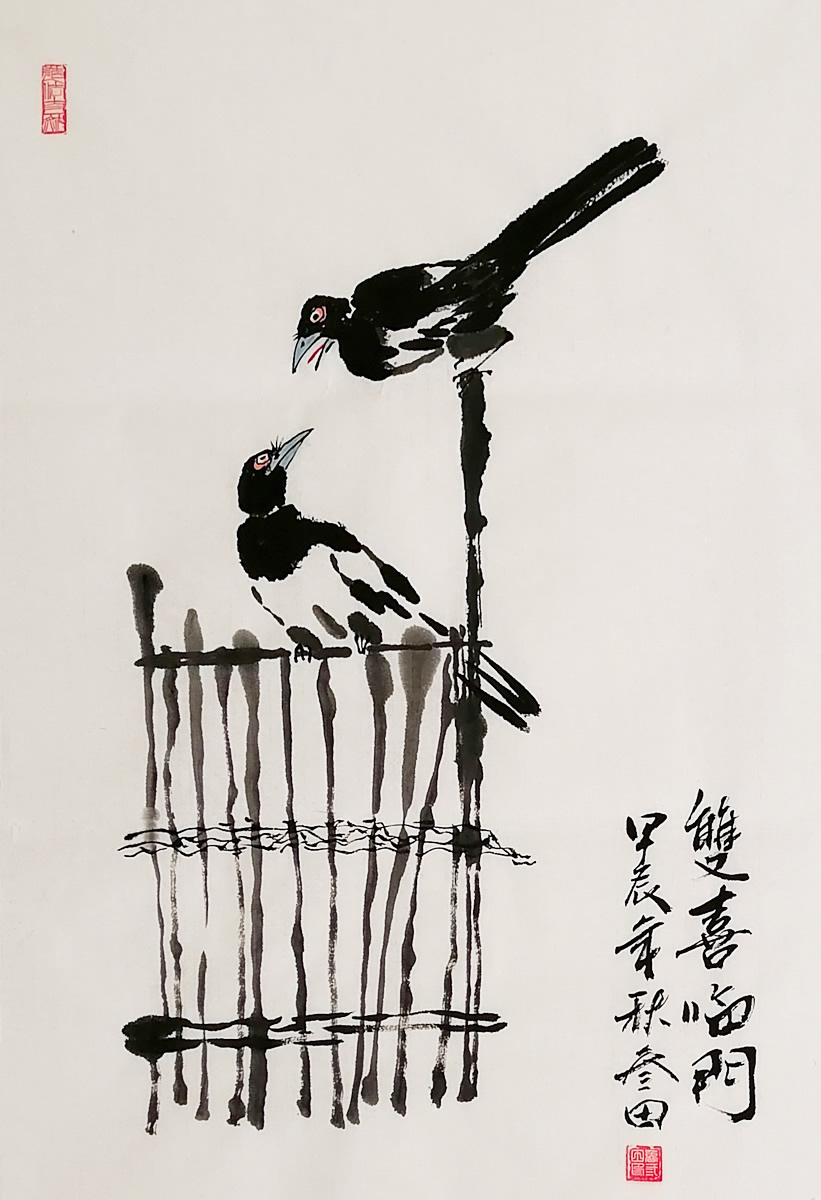 雙喜臨門
甲辰年秋叄田